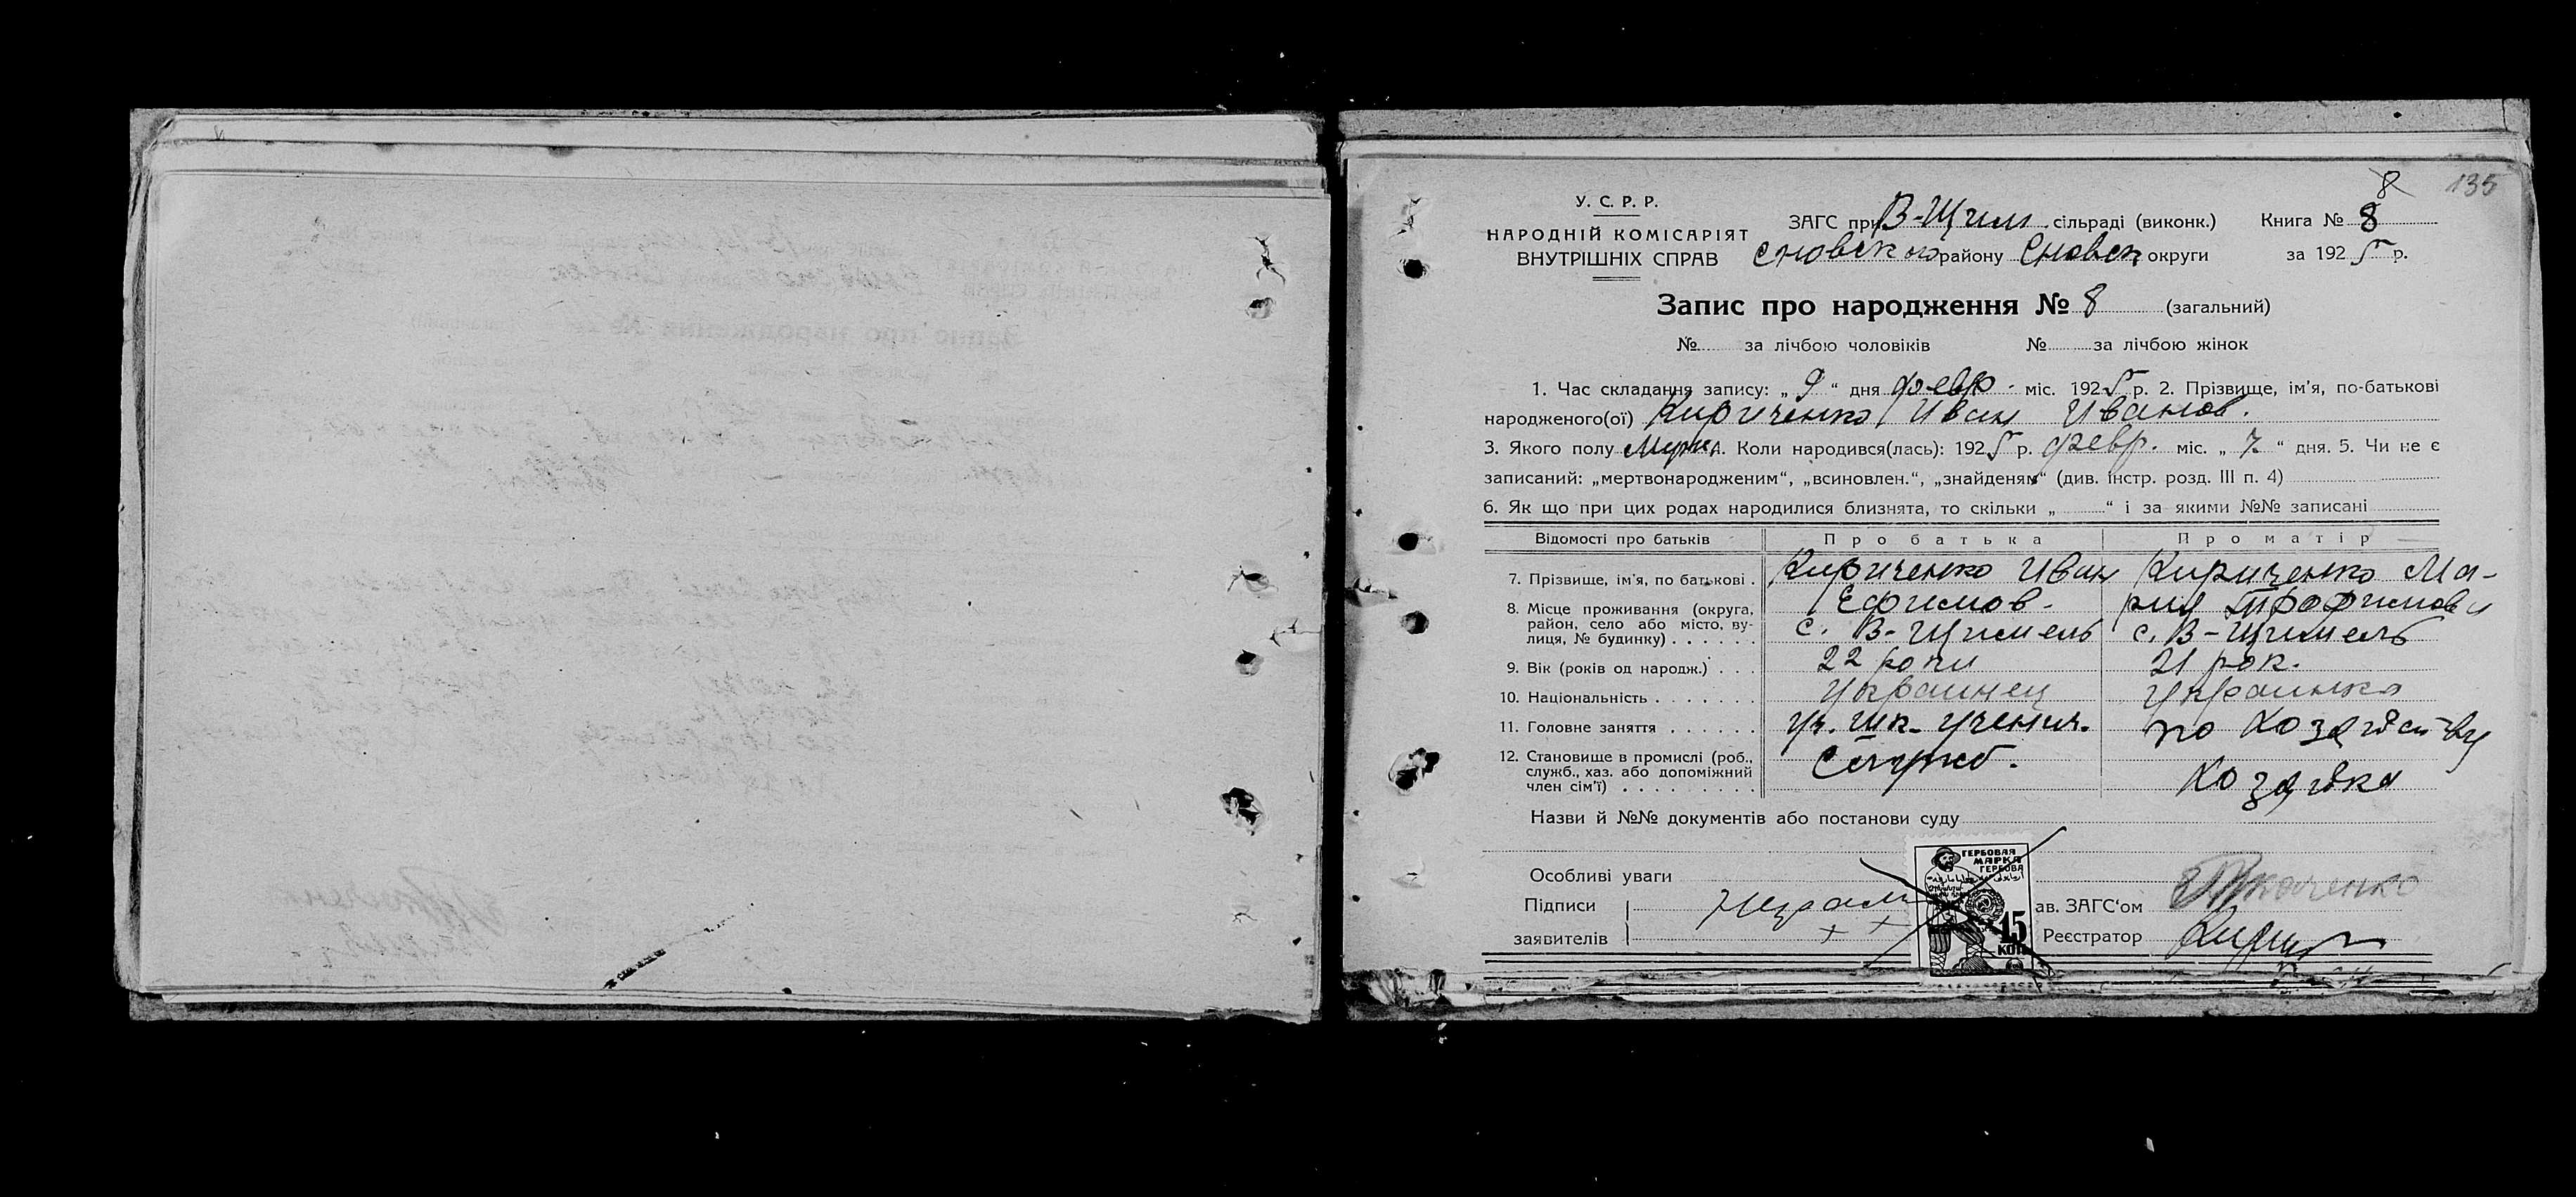 135
8
У. С. Р. Р.
НАРОДНІЙ КОМІСАРІЯТ
ВНУТРІШНІХ СПРАВ
ЗАГС при В-Щим. сільраді (виконк.)
Сновск ого району Сновск округи
Книга № 8
за 1925 р.
Запис про народження № 8 (загальний)
№ за лічбою чоловіків № за лічбою жінок
1. Час складання запису: „ 9 “ дня февр. міс. 1925 р. 2. Прізвище, ім'я, по-батькові
народженого(ої) Кириченко Иван Иванов.
3. Якого полу Муж. 4. Коли народився(лась): 1925 р. февр. міс. „ 7 “ дня. 5. Чи не є
записаний: „мертвонародженим“, „всиновлен.“, „знайденям“ (див. інстр. розд. III п. 4)
6. Як що при цих родах народилися близнята, то скільки „ “ і за якими №№ записані
Відомості про батьків Про батька Про матір
7. Прізвище, ім'я, по батькові . Кириченко Иван Ефимов. Кириченко Мария Трофимов
8. Місце проживання (округа,
район, село або місто, ву-
лиця, № будинку) . . . . . . с. В-Щимель с. В-Щимель
9. Вік (років од народж.) . . . 22 роки 21 рок.
10. Національність . . . . . . . Украинец Украинка
11. Головне заняття . . . . . . уч. шк. учения. по хозяйству
12. Становище в промислі (роб.,
служб., хаз. або допоміжний
член сім'ї) . . . . . . . . . Служб. Хозяйка
Назви й №№ документів або постанови суду
Особливі уваги
Підписи
заявителів
Неграм
+ +
ГЕРБОВАЯ
МАРКА
ГЕРБОВА
15
КОП
ав. ЗАГС‘ом Ткаченко
Реєстратор